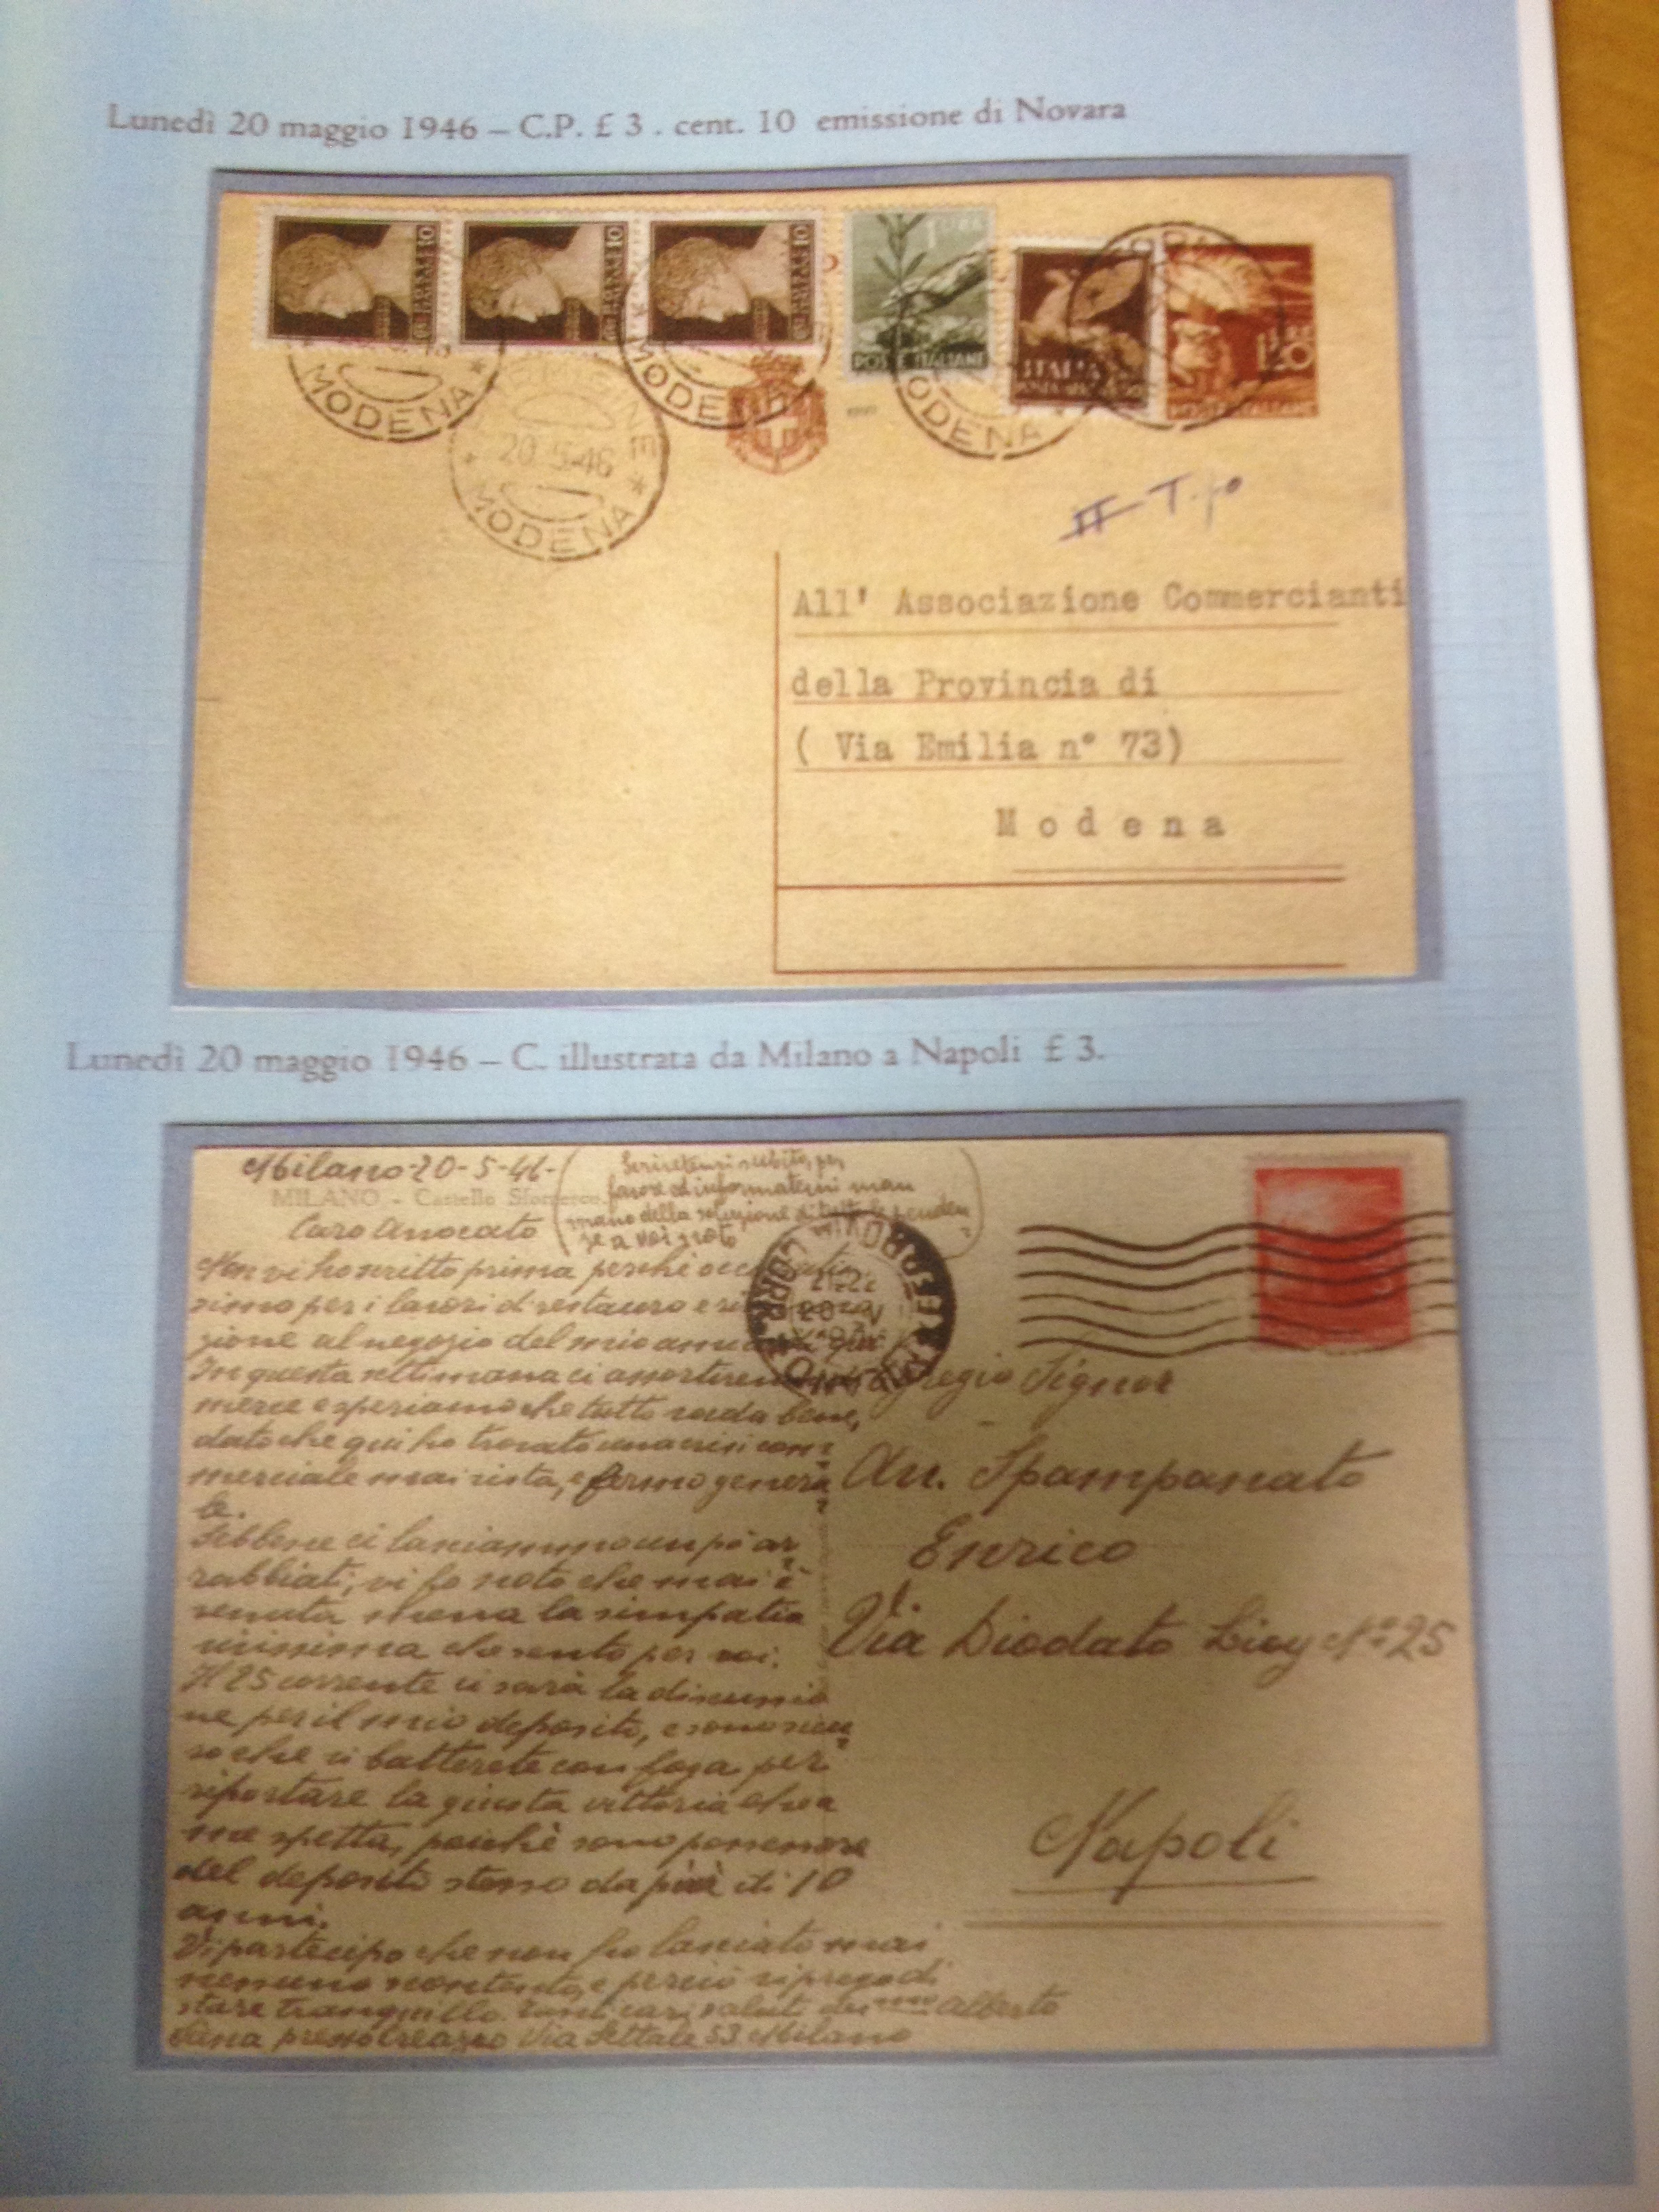 Lunedì 20 maggio 1946 – C.P. £ 3 . cent. 10 emissione di Novara
10
10
10
1 LIRA
POSTE ITALIANE
ITALIA
1,20
POSTE ITALIANE
MODENA
MODENA
20 5-46
MODENA
MODENA
II Tipo
All' Associazione Commercianti
della Provincia di
( Via Emilia n° 73)
Modena
Lunedì 20 maggio 1946 – C. illustrata da Milano a Napoli £ 3.
Milano 20-5-46-
MILANO - Castello Sforzesco
(Scrivetemi subito, per
favore ed informatemi man
mano della soluzione di tutte le penden
ze a voi note)
Caro Avvocato
Non vi ho scritto prima perchè
simo per i lavori di restauro e
zione al negozio del mio
In questa settimana ci assortiremo
merce e speriamo che tutto vada bene,
dato che qui ho trovato una crisi com=
merciale mai vista, e fermo genera
le.
Sebbene ci lasciammo un pò ar
rabbiati, vi fo noto che mai è
venuta meno la simpatia
vivissima che sento per voi.
Il 25 corrente ci sarà la discussio
ne per il mio deposito, e sono sicu
ro che vi batterete con foga per
riportare la giusta vittoria che a
me spetta, poichè sono possessore
del deposito stesso da più di 10
anni.
Vi partecipo che non ho lasciato mai
nessuno scontento, e perciò vi prego di
stare tranquillo. Tanti cari saluti dal Alberto
Via Settale 53 Milano
MILANO FERROVIA
Egregio Signor
Avv. Spampanato
Enrico
Via Diodato Lioy N° 25
Napoli